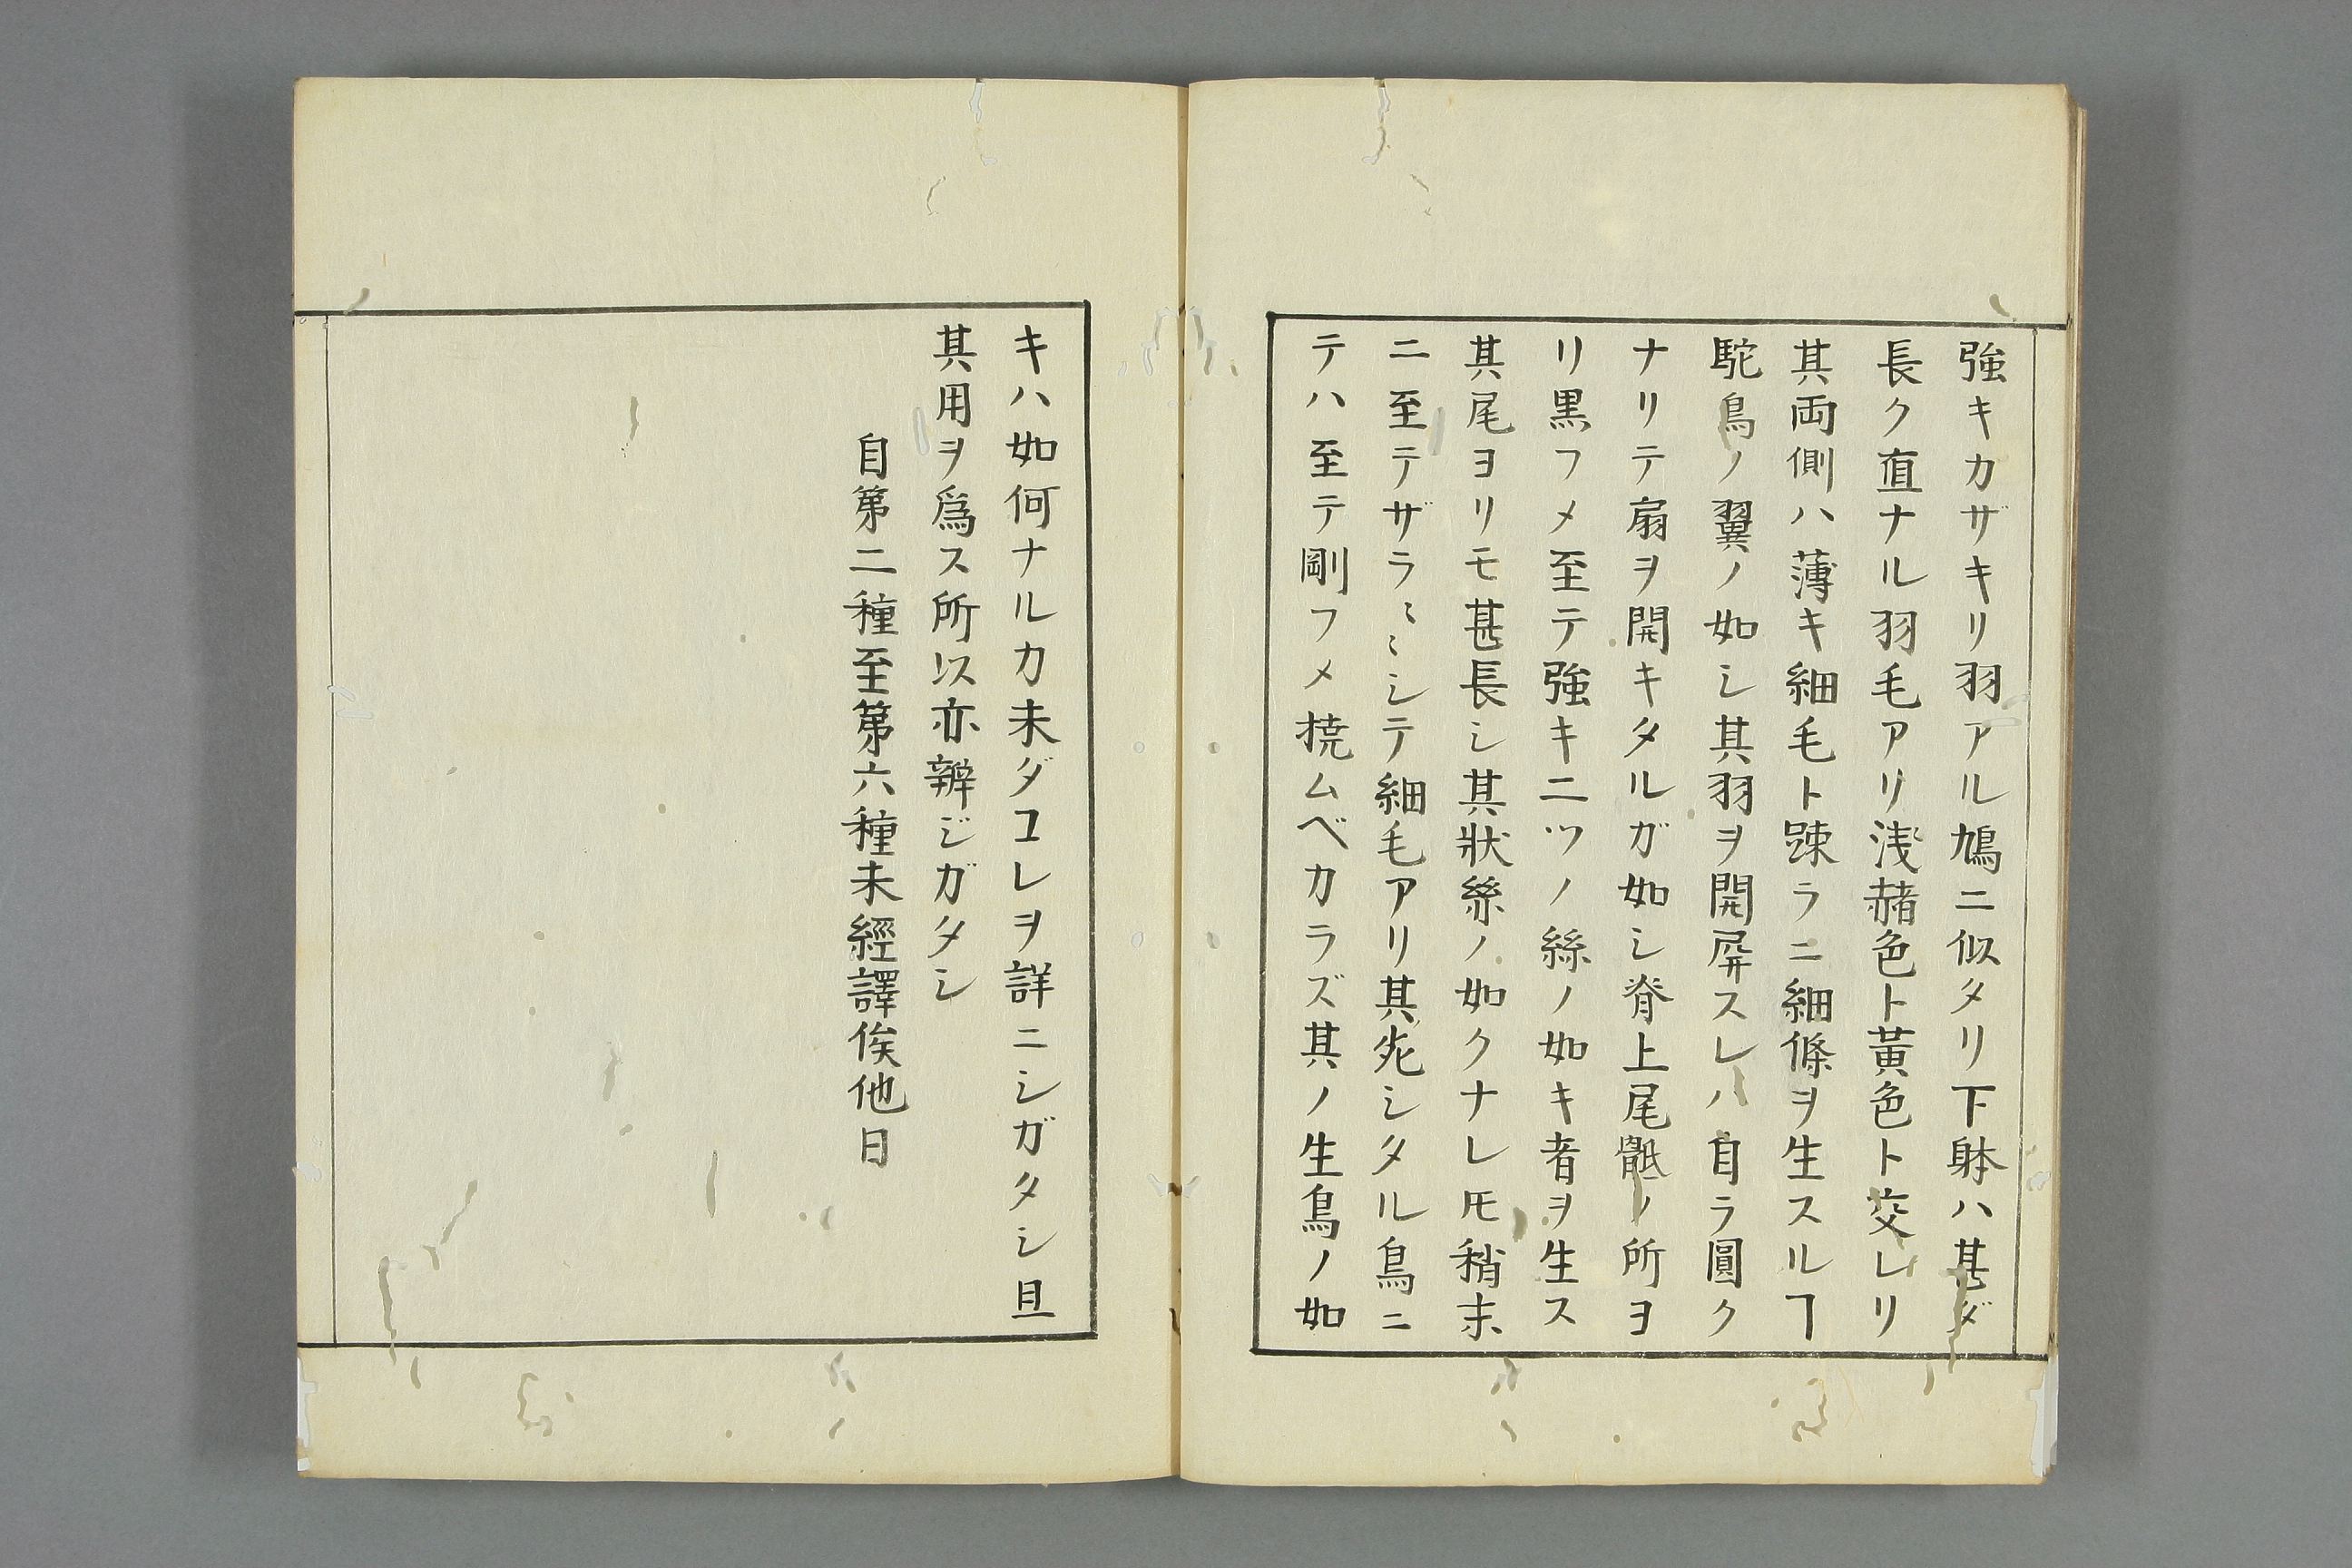 強キカザキリ羽アル鳩ニ似タリ下躰ハ甚ダ
長ク直ナル羽毛アリ浅赭色ト黃色ト茭レリ
其両側ハ薄キ細毛ト踈ラニ細條ヲ生スルヿ
駝鳥ノ翼ノ如シ其羽ヲ開屛スレハ自ラ圓ク
ナリテ扇ヲ開キタルガ如シ脊上尾骶ノ所ヨ
リ黒フメ至テ強キ二ツノ絲ノ如キ者ヲ生ス
其尾ヨリモ甚長シ其狀絲ノ如クナレ𪜈稍末
ニ至テザラ〻〻シテ細毛アリ其死シタル鳥ニ
テハ至テ剛フメ撓ムベカラズ其ノ生鳥ノ如
キハ如何ナルカ未ダコレヲ詳ニシガタシ且
其用ヲ爲ス所以亦辨ジガタシ
自第二種至第六種未經譯俟他日